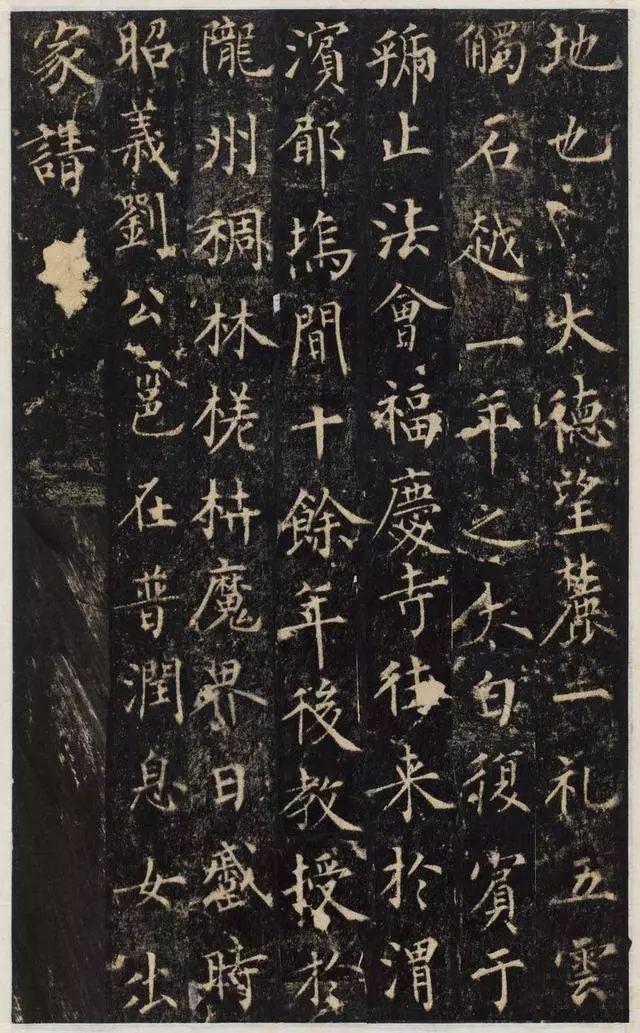 地也〻大德望麓一礼五雲
觸石越一年之太白復賓于
止法會福慶寺往来於渭
濱郿塢間十餘年後教授於
隴州稠林槎枿魔界日蹙時
昭義劉公邕在普潤息女出
家請